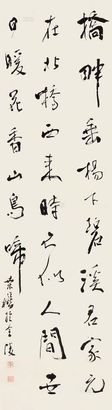 橋畔垂楊下碧溪君家元
在北橋西來時不似人間世
日暖花香山鳥啼